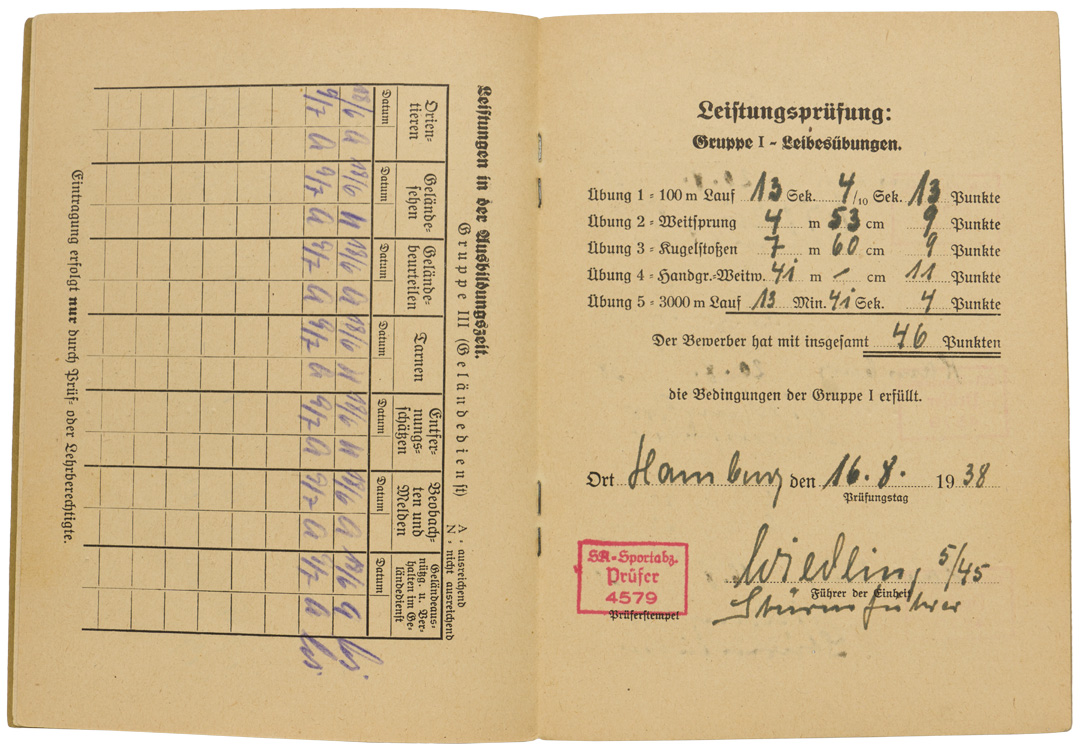 Leistungen in der Ausbildungszeit.
Gruppe III (Geländedienst)
A = ausreichend
N = nicht ausreichend
Orien-
tieren
Gelände-
sehen
Gelände-
beurteilen
Tarnen
Entfer-
nungs-
schätzen
Beobach-
ten und
Melden
Geländeaus-
nützg. u. Ver-
halten im Ge-
ländedienst
Datum Datum Datum Datum Datum Datum Datum
18/6 A 18/6 N 18/6 A 18/6 N 18/6 N 18/6 A 18/6
9/7 A 9/7 A 9/7 A 9/7 A 9/7 A 9/7 A 9/7 A
Eintragung erfolgt nur durch Prüf- oder Lehrberechtigte.
Leistungsprüfung:
Gruppe I - Leibesübungen.
Übung 1 = 100 m Lauf 13 Sek. 4/10 Sek. 13 Punkte
Übung 2 = Weitsprung 4 m 53 cm 9 Punkte
Übung 3 = Kugelstoßen 7 m 60 cm 9 Punkte
Übung 4 = Handgr.-Weitw. 41 m - cm 11 Punkte
Übung 5 = 3000 m Lauf 13 Min. 41 Sek. 4 Punkte
Der Bewerber hat mit insgesamt 46 Punkten
die Bedingungen der Gruppe I erfüllt.
Ort Hamburg den 16.8. 1938
Prüfungstag
SA-Sportabz.
Prüfer
4579
Prüferstempel
Wiedling 5/45
Führer der Einheit
Sturmführer